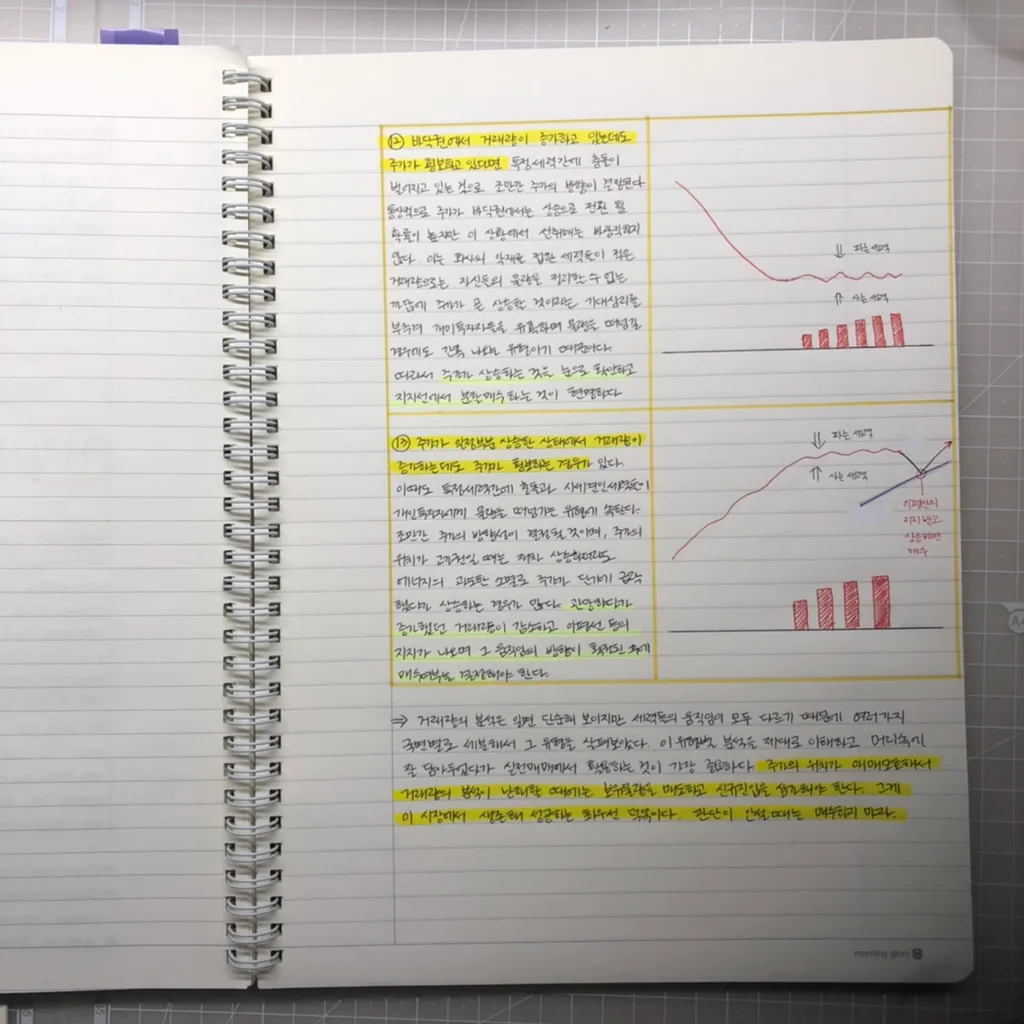 ⑫ 바닥권에서 거래량이 증가하고 있는데도
주가가 횡보하고 있다면 특정세력간에 충돌이
벌어지고 있는 것으로 조만간 주가의 방향이 결정된다
통상적으로 주가가 바닥권에서는 상승으로 전환 될
확률이 높지만 이 상황에서 선취매는 바람직하지
않다. 이는 회사의 악재를 접한 세력들이 적은
거래량으로는 자신들의 물량을 정리할 수 없는
까닭에 주가가 곧 상승할 것이라는 기대심리를
부추겨 개미투자자들을 유혹하며 물량을 떠넘길
경우에도 간혹 나오는 유형이기 때문이다.
따라서 주가가 상승하는 것을 눈으로 확인하고
지지선에서 분할매수하는 것이 현명하다
파는 세력
사는 세력
⑬ 주가가 일정부분 상승한 상태에서 거래량이
증가하는데도 주가가 횡보하는 경우가 있다.
이때도 특정세력간에 충돌과 사세력인세력들이
개인투자자에게 물량을 떠넘기는 유형에 속한다.
조만간 주가의 방향성이 결정될 것이며, 주가의
위치가 고가권일 때는 재차 상승하더라도
에너지의 과도한 소멸로 주가가 단기에 급락
했다가 상승하는 경우가 많다. 관망하다가
증가했던 거래량이 감소하고 이평선 등의
지지가 나오며 그 움직임의 방향이 확정된 후에
매수여부를 결정해야 한다.
파는 세력
사는 세력
이평선의
지지 받고
상승하면
매수
⇒ 거래량의 분석은 일면 단순해 보이지만 세력들의 움직임이 모두 다르기 때문에 여러가지
국면별로 세분해서 그 유형을 살펴보았다. 이 유형별 분석을 제대로 이해하고 머리속에
잘 담아두었다가 실전매매에서 활용하는 것이 가장 중요하다. 주가의 위치가 애매모호해서
거래량의 분석이 난해할 때에는 보유물량을 매도하고 신규진입을 삼가해야 한다. 그게
이 시장에서 생존해 성공하는 최우선 덕목이다. 판단이 안설때는 매수하지 마라.
morning glory